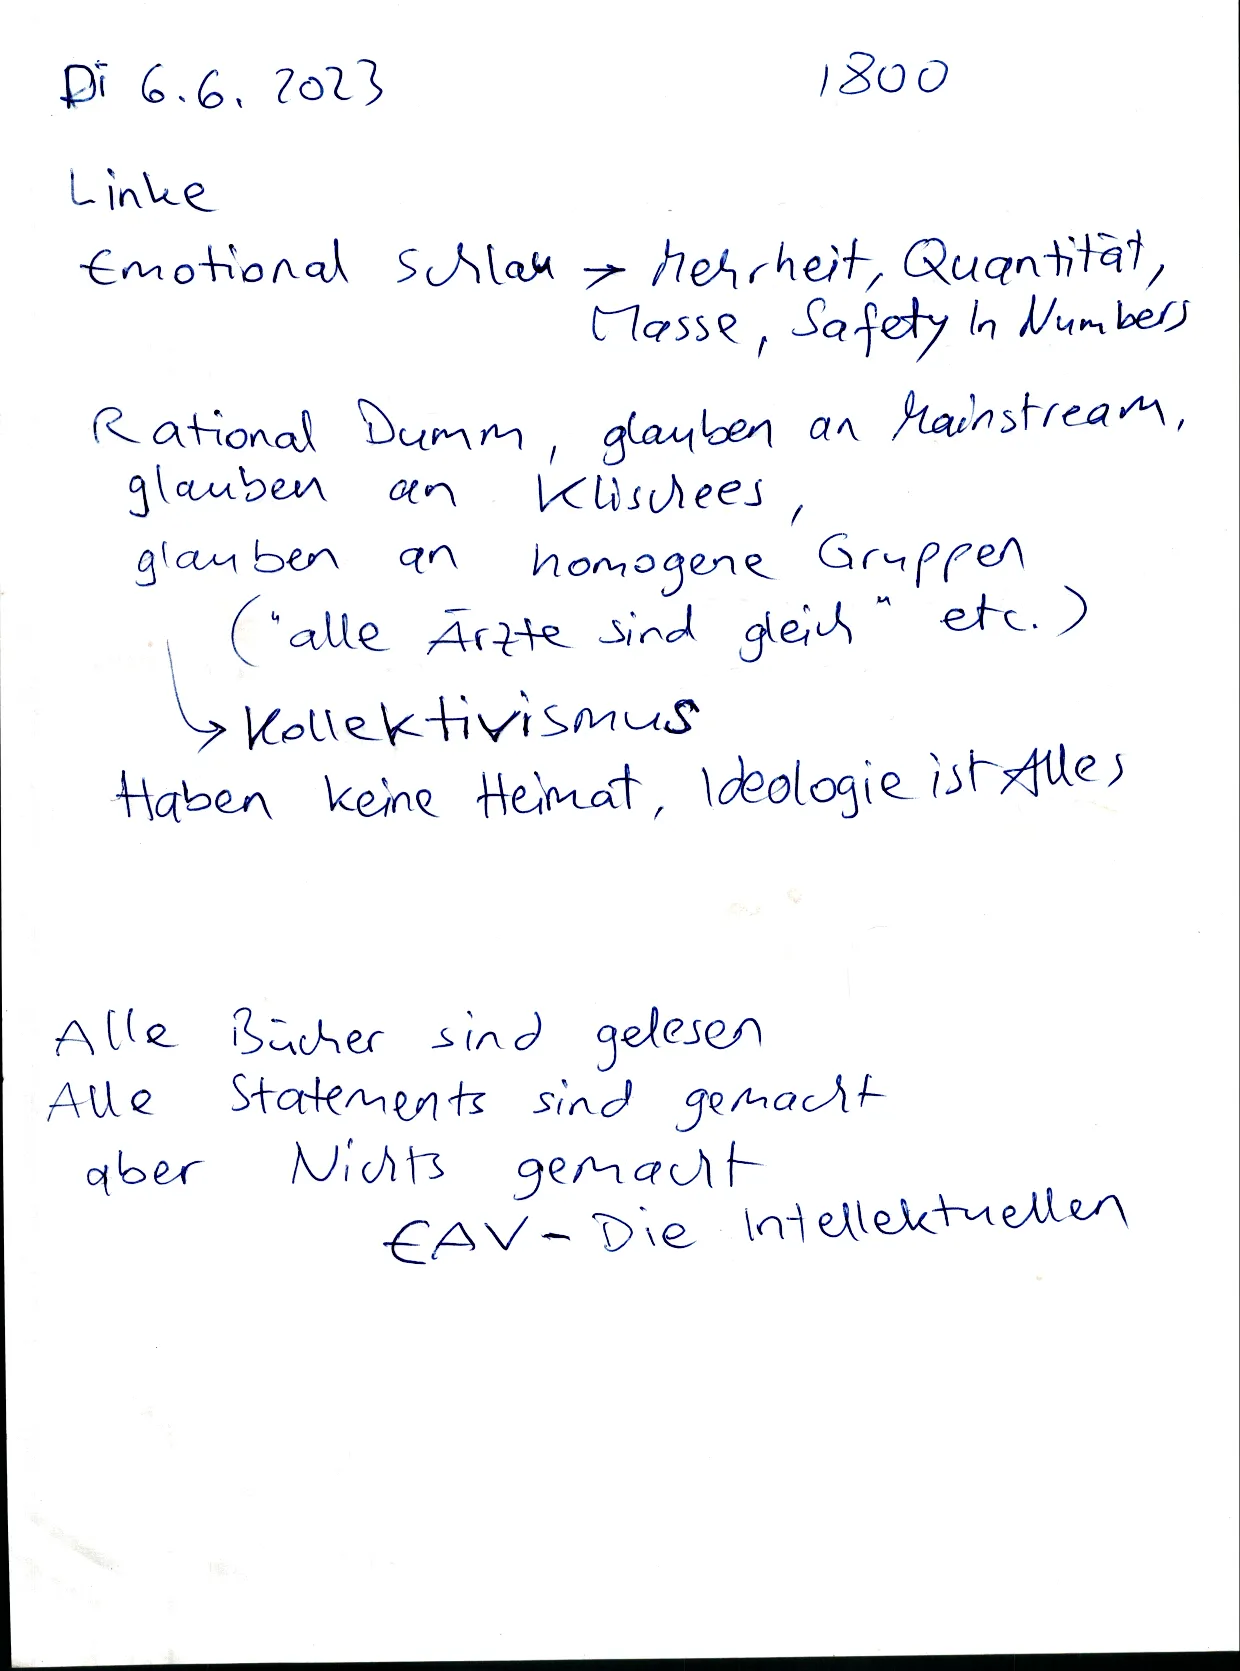 Di 6.6. 2023 1800
Linke
Emotional Schlau → Mehrheit, Quantität,
Masse, Safety In Numbers
Rational Dumm, glauben an Mainstream,
glauben an Klischees,
glauben an homogene Gruppen
("alle Ärzte sind gleich" etc.)
↳ Kollektivismus
Haben keine Heimat, Ideologie ist Alles
Alle Bücher sind gelesen
Alle Statements sind gemacht
aber Nichts gemacht
EAV - Die Intellektuellen